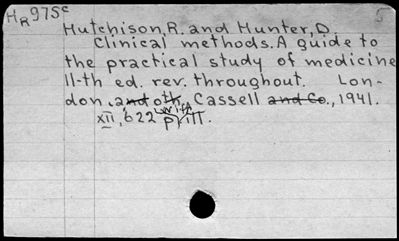 HR975c 5
Hutchison, R. and Hunter, D.
Clinical methods. A guide to
the practical study of medicine
11-th ed. rev. throughout. Lon-
don, and oth, Cassell and Co., 1941.
with
XII, 622 p. ill.